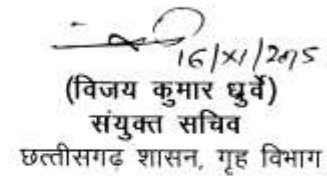 16/XI/2015
(विजय कुमार धुर्वे)
संयुक्त सचिव
छत्तीसगढ़ शासन, गृह विभाग